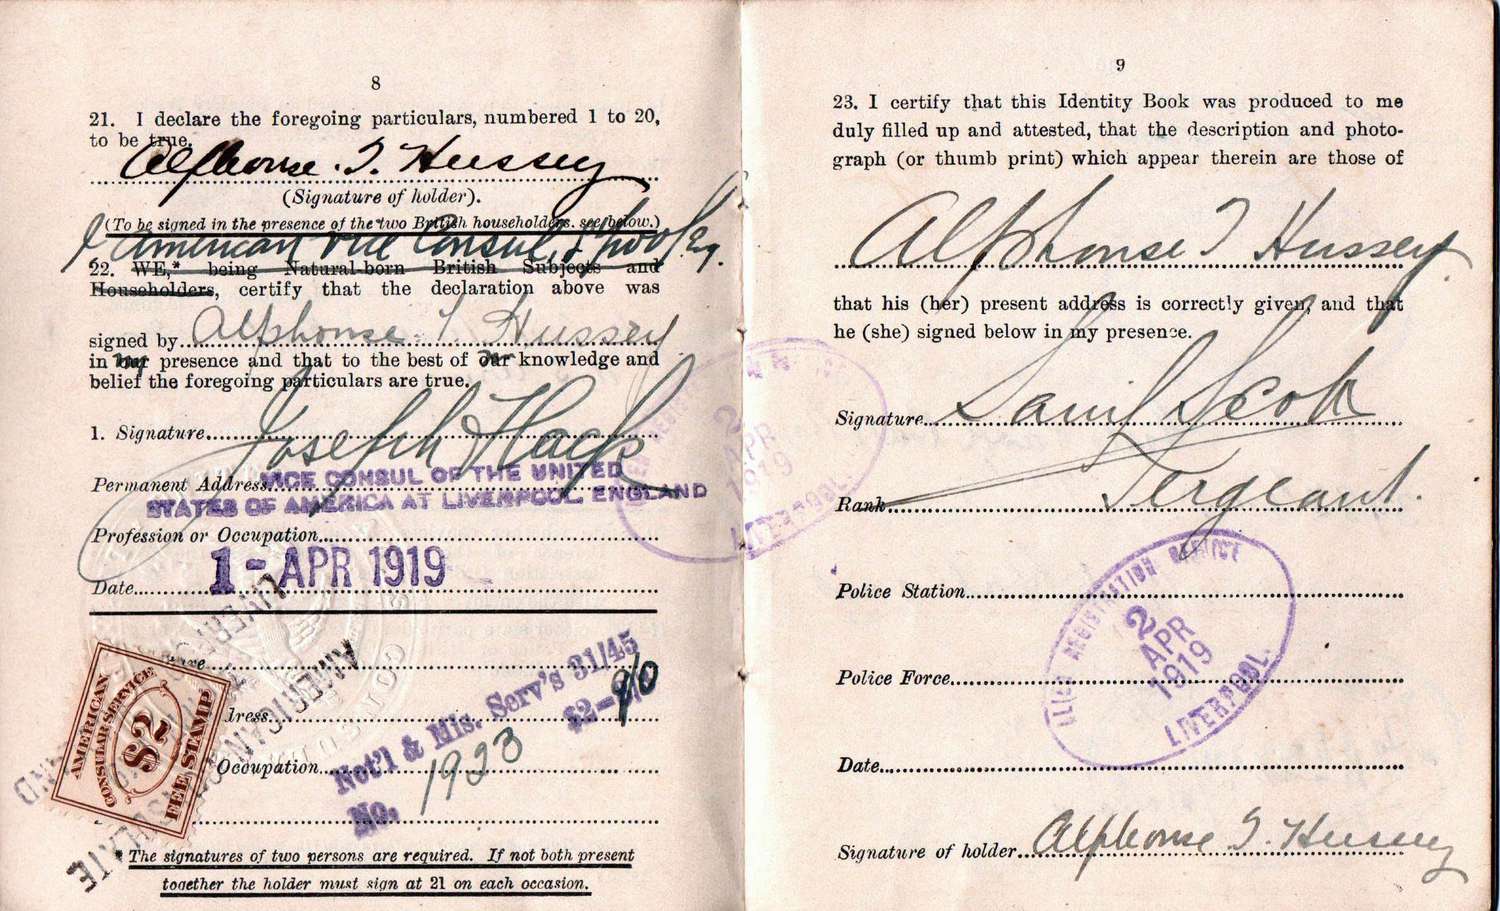 8
21. I declare the foregoing particulars, numbered 1 to 20,
to be true.
Alphonse. T. Hussey
(Signature of holder).
(To be signed in the presence of the two British householders. see below.)
I American Vice Consul,
22. WE,* being Natural-born British Subjects and
Householders, certify that the declaration above was
signed by Alphonse. T. Hussey
in my presence and that to the best of our knowledge and
belief the foregoing particulars are true.
1. Signature Joseph Flack
Permanent Address
VICE CONSUL OF THE UNITED
STATES OF AMERICA AT LIVERPOOL, ENGLAND
Profession or Occupation
Date 1 - APR 1919
AMERICAN
CONSULAR SERVICE
$2
FEE STAMP
AMERICAN
Occupation
Not'l & Mis. Serv's 31/45
$2=
No. 1923
* The signatures of two persons are required. If not both present
together the holder must sign at 21 on each occasion.
9
23. I certify that this Identity Book was produced to me
duly filled up and attested, that the description and photo-
graph (or thumb print) which appear therein are those of
Alphonse T Hussey
that his (her) present address is correctly given, and that
he (she) signed below in my presence.
Signature Saml Scott
Rank Sergeant.
2
APR
1919
LIVERPOOL.
Police Station
ALIEN REGISTRATION SERVICE
2
APR
1919
LIVERPOOL.
Police Force
Date
Signature of holder Alphonse T. Hussey